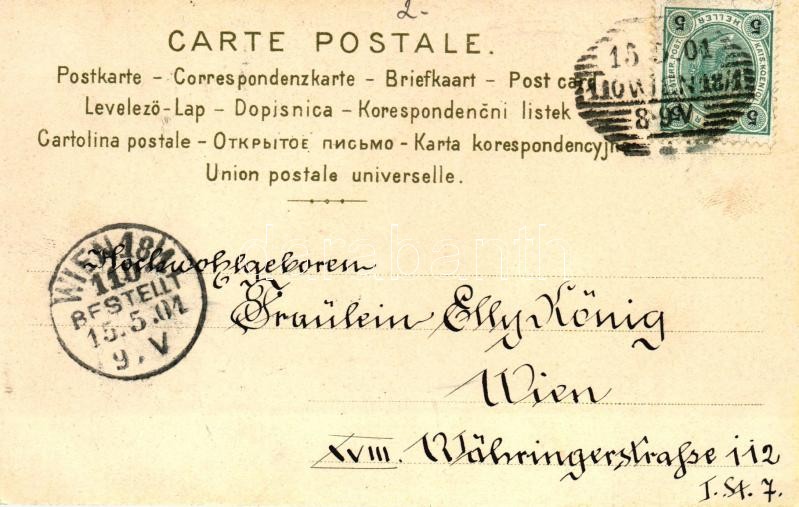 2.-
CARTE POSTALE.
Postkarte - Correspondenzkarte - Briefkaart - Post card
Levelező-Lap - Dopisnica - Korespondenční listek
Cartolina postale - Открытое письмо - Karta korespondencyjna
Union postale universelle.
5 HELLER 5
15 5 01
WIEN
8-9V
WIEN 18/1
110
BESTELLT
15.5.01
9.V
darabanth
Hochwohlgeboren
Fräulein Elly König
Wien
XVIII. Währingerstrasse 112
I. St. 7.